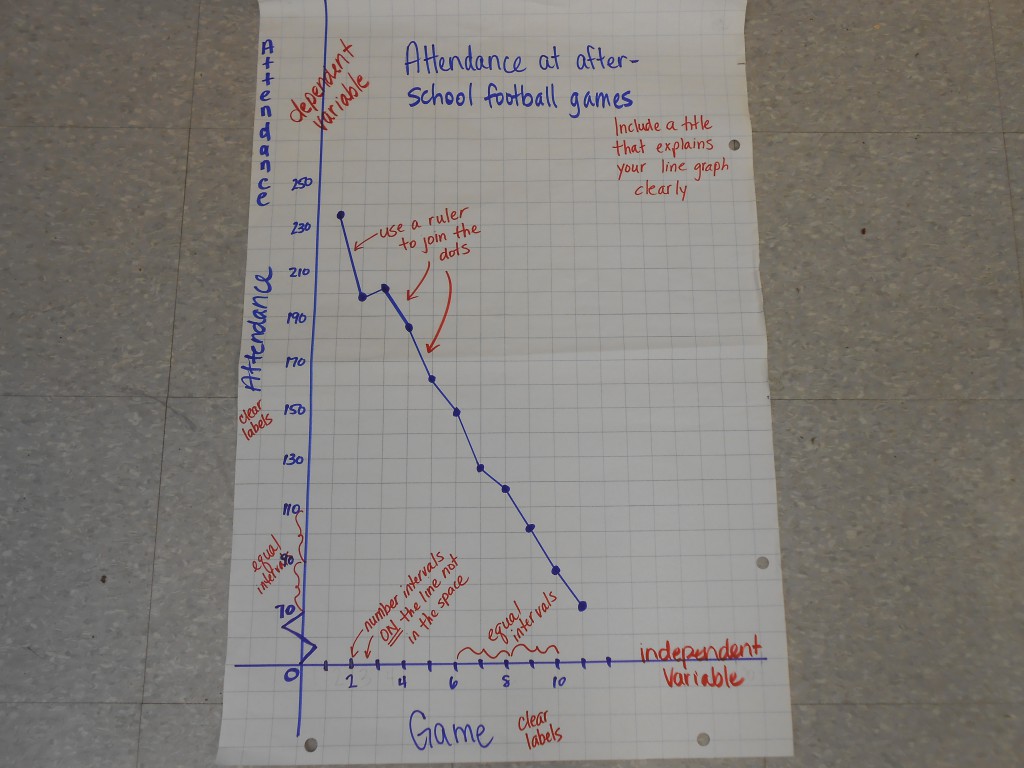 Attendance
dependent
variable
Attendance at after-
school football games
Include a title
that explains
your line graph
clearly
250
230
210
190
170
150
130
110
90
70
0
use a ruler
to join the
dots
Attendance
clear
labels
equal
intervals
number intervals
ON the line not
in the space
equal
intervals
2
4
6
8
10
independent
variable
Game
clear
labels